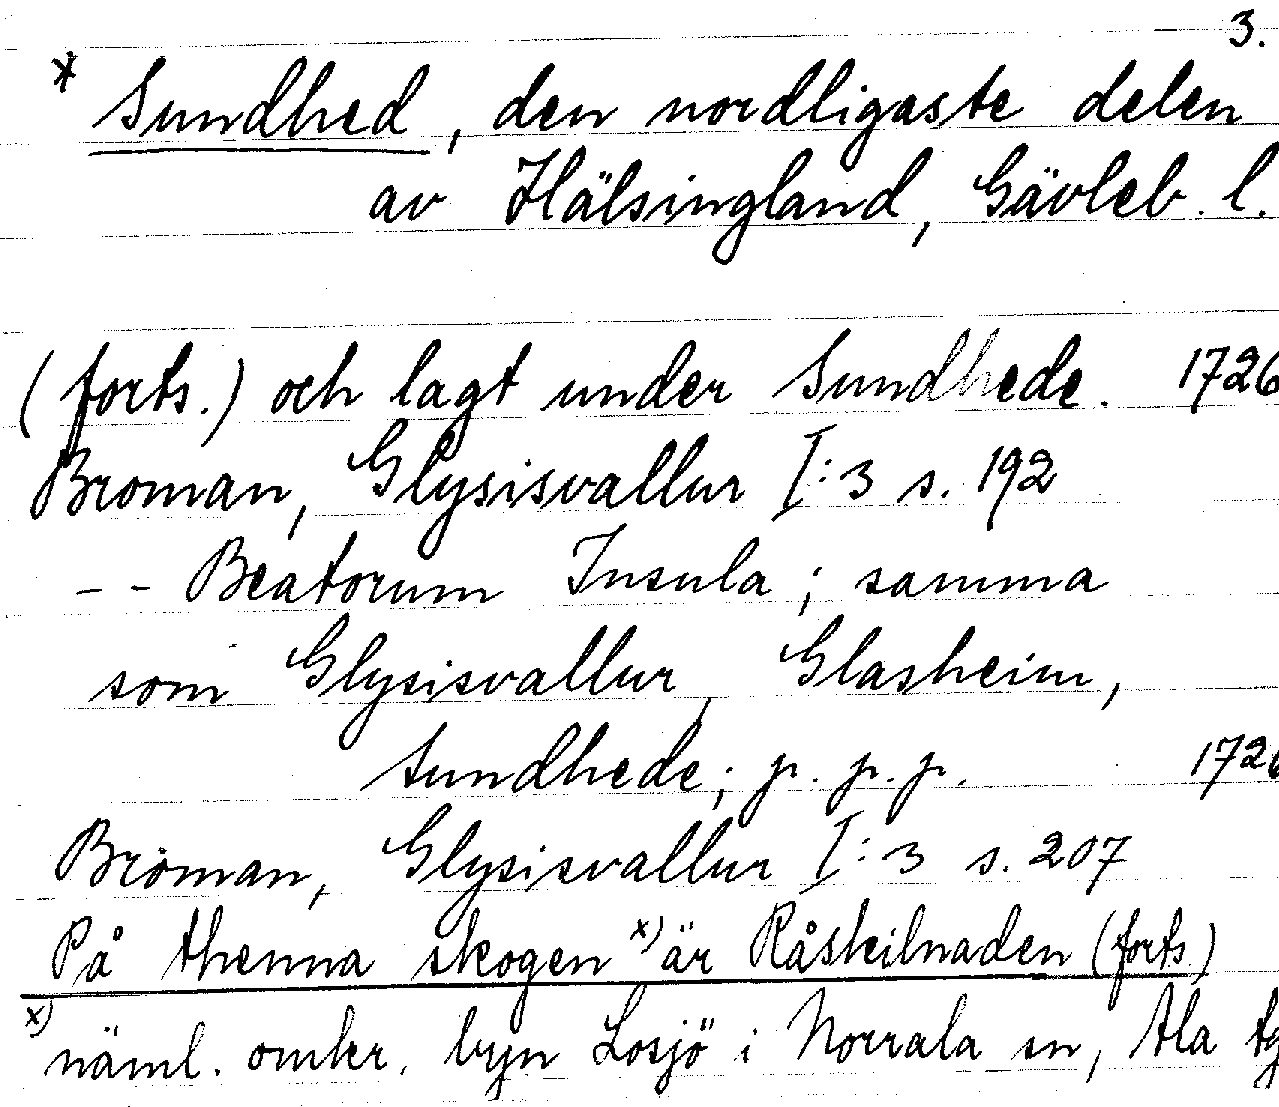 3.
* Sundhed, den nordligaste delen
av Hälsingland, Gävleb. l.
(forts.) och lagt under Sundhede. 1726
Broman, Glysisvallur I:3 s. 192
-- Beatorum Insula; samma
som Glysisvallur, Glasheim,
Sundhede; p. p. p. 172
Broman, Glysisvallur I:3 s. 207
På thenna skogen x) är Råskilnaden (forts)
x) näml. omkr. byn Losjö i Norrala sn, Ala tg